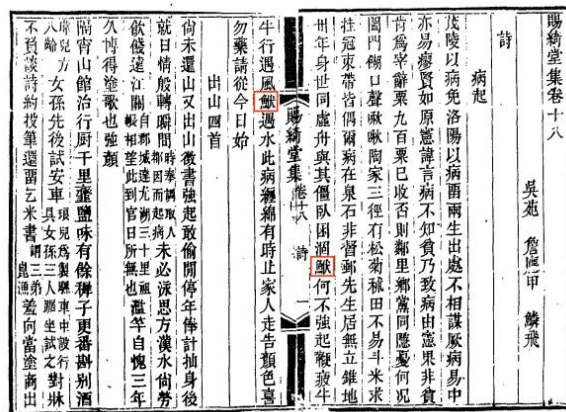 賜綺堂集卷十八
吳苑 詹應甲 鱗飛
詩
病起
茂陵以病免洛陽以病畱兩生出處不相謀厭病易中
亦易瘳賢如原憲諱言病不知貧乃致病由憲果非貧
肯為宰辭粟九百粟已收否則鄰里鄉黨同隱憂何況
闔門餬口聲啾啾陶家三徑有松菊秫田不易斗米求
挂冠束帶皆偶爾病在泉石非督郵先生居無立錐地
卅年身世同虛舟與其僵臥困涸何不強起鞭疲牛
賜綺堂集 卷十八 詩 一
牛行遇風遇水此病纏綿有時止家人走告顏色喜
勿藥請從今日始
出山四首
尚未還山又出山徵書強起敢偷閒停年俸計抽身後
就日情殷轉瞬間時奉調取入都因而起病未必泳思方漢水尚勞
飲餞達江關自城達三十里祖帳相望此到官日所無也濫竽自愧三年
久博得塗歌也強顏
隔宵山館治行廚千里虀鹽味有餘稚子更番斟别酒
琅兒方八齡女孫先後試安車琅兒為製聯車中設行具女孫三人坐試之對牀
不負談詩約投筆還畱乞米書謂三弟崑漁羞向當塗商出